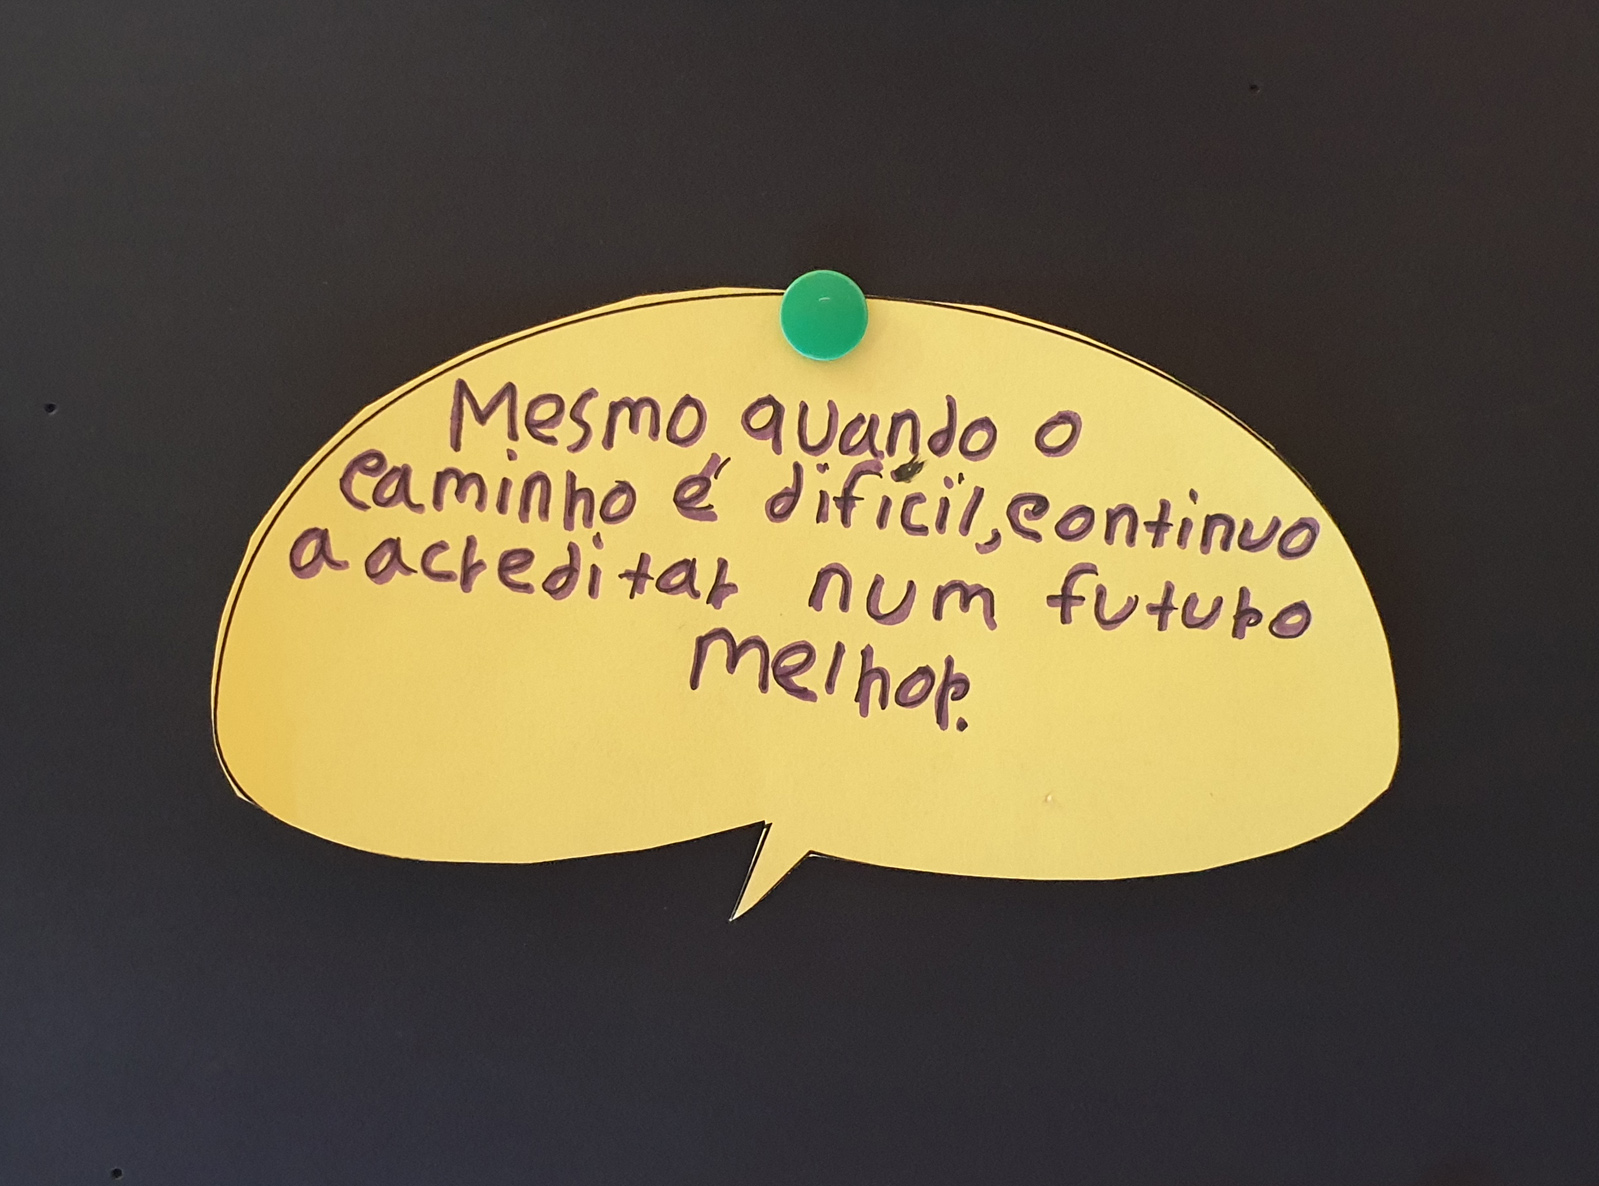 Mesmo quando o
caminho é difícil, continuo
a acreditar num futuro
melhor.